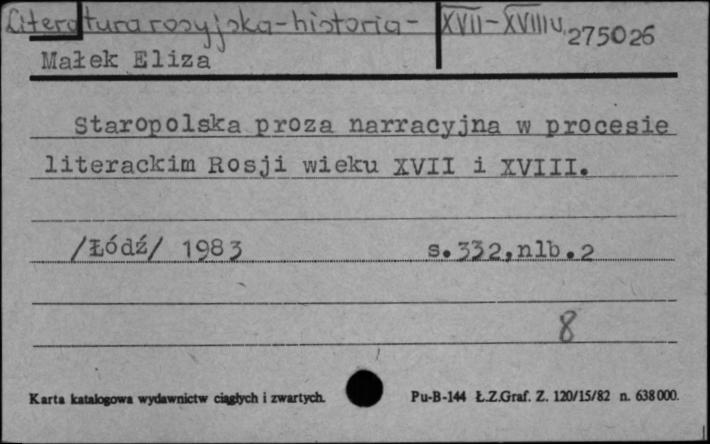 Literatura rosyjska-historia- XVII-XVIII w. 275026
Małek Eliza
Staropolska proza narracyjna w procesie
literackim Rosji wieku XVII i XVIII.
/Łódź/ 1983 s.332,nlb.2
8
Karta katalogowa wydawnictw ciągłych i zwartych. Pu-B-144 Ł.Z.Graf. Z. 120/15/82 n. 638000.